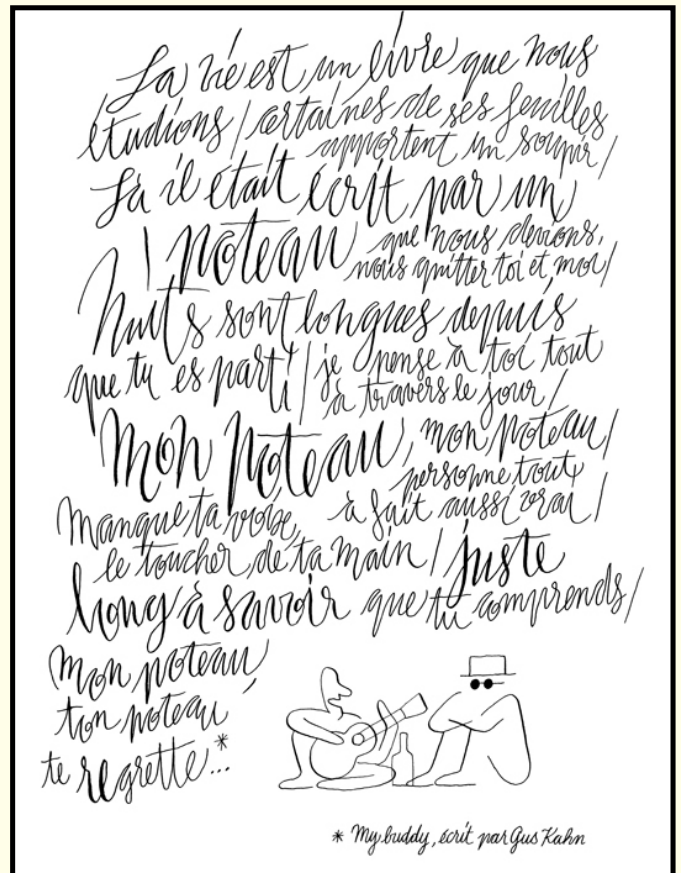 La vie est un livre que nous
étudions / certaines de ses feuilles
apportent un soupir /
Là il était écrit par un
poteau que nous devions,
nous quitter toi et moi /
Nuits sont longues depuis
que tu es parti / je pense à toi tout
à travers le jour /
Mon poteau, mon poteau /
personne tout
à fait aussi vrai /
Manque ta voix,
le toucher de ta main / juste
long à savoir que tu comprends /
mon poteau,
ton poteau
te regrette*...
* My buddy, écrit par Gus Kahn